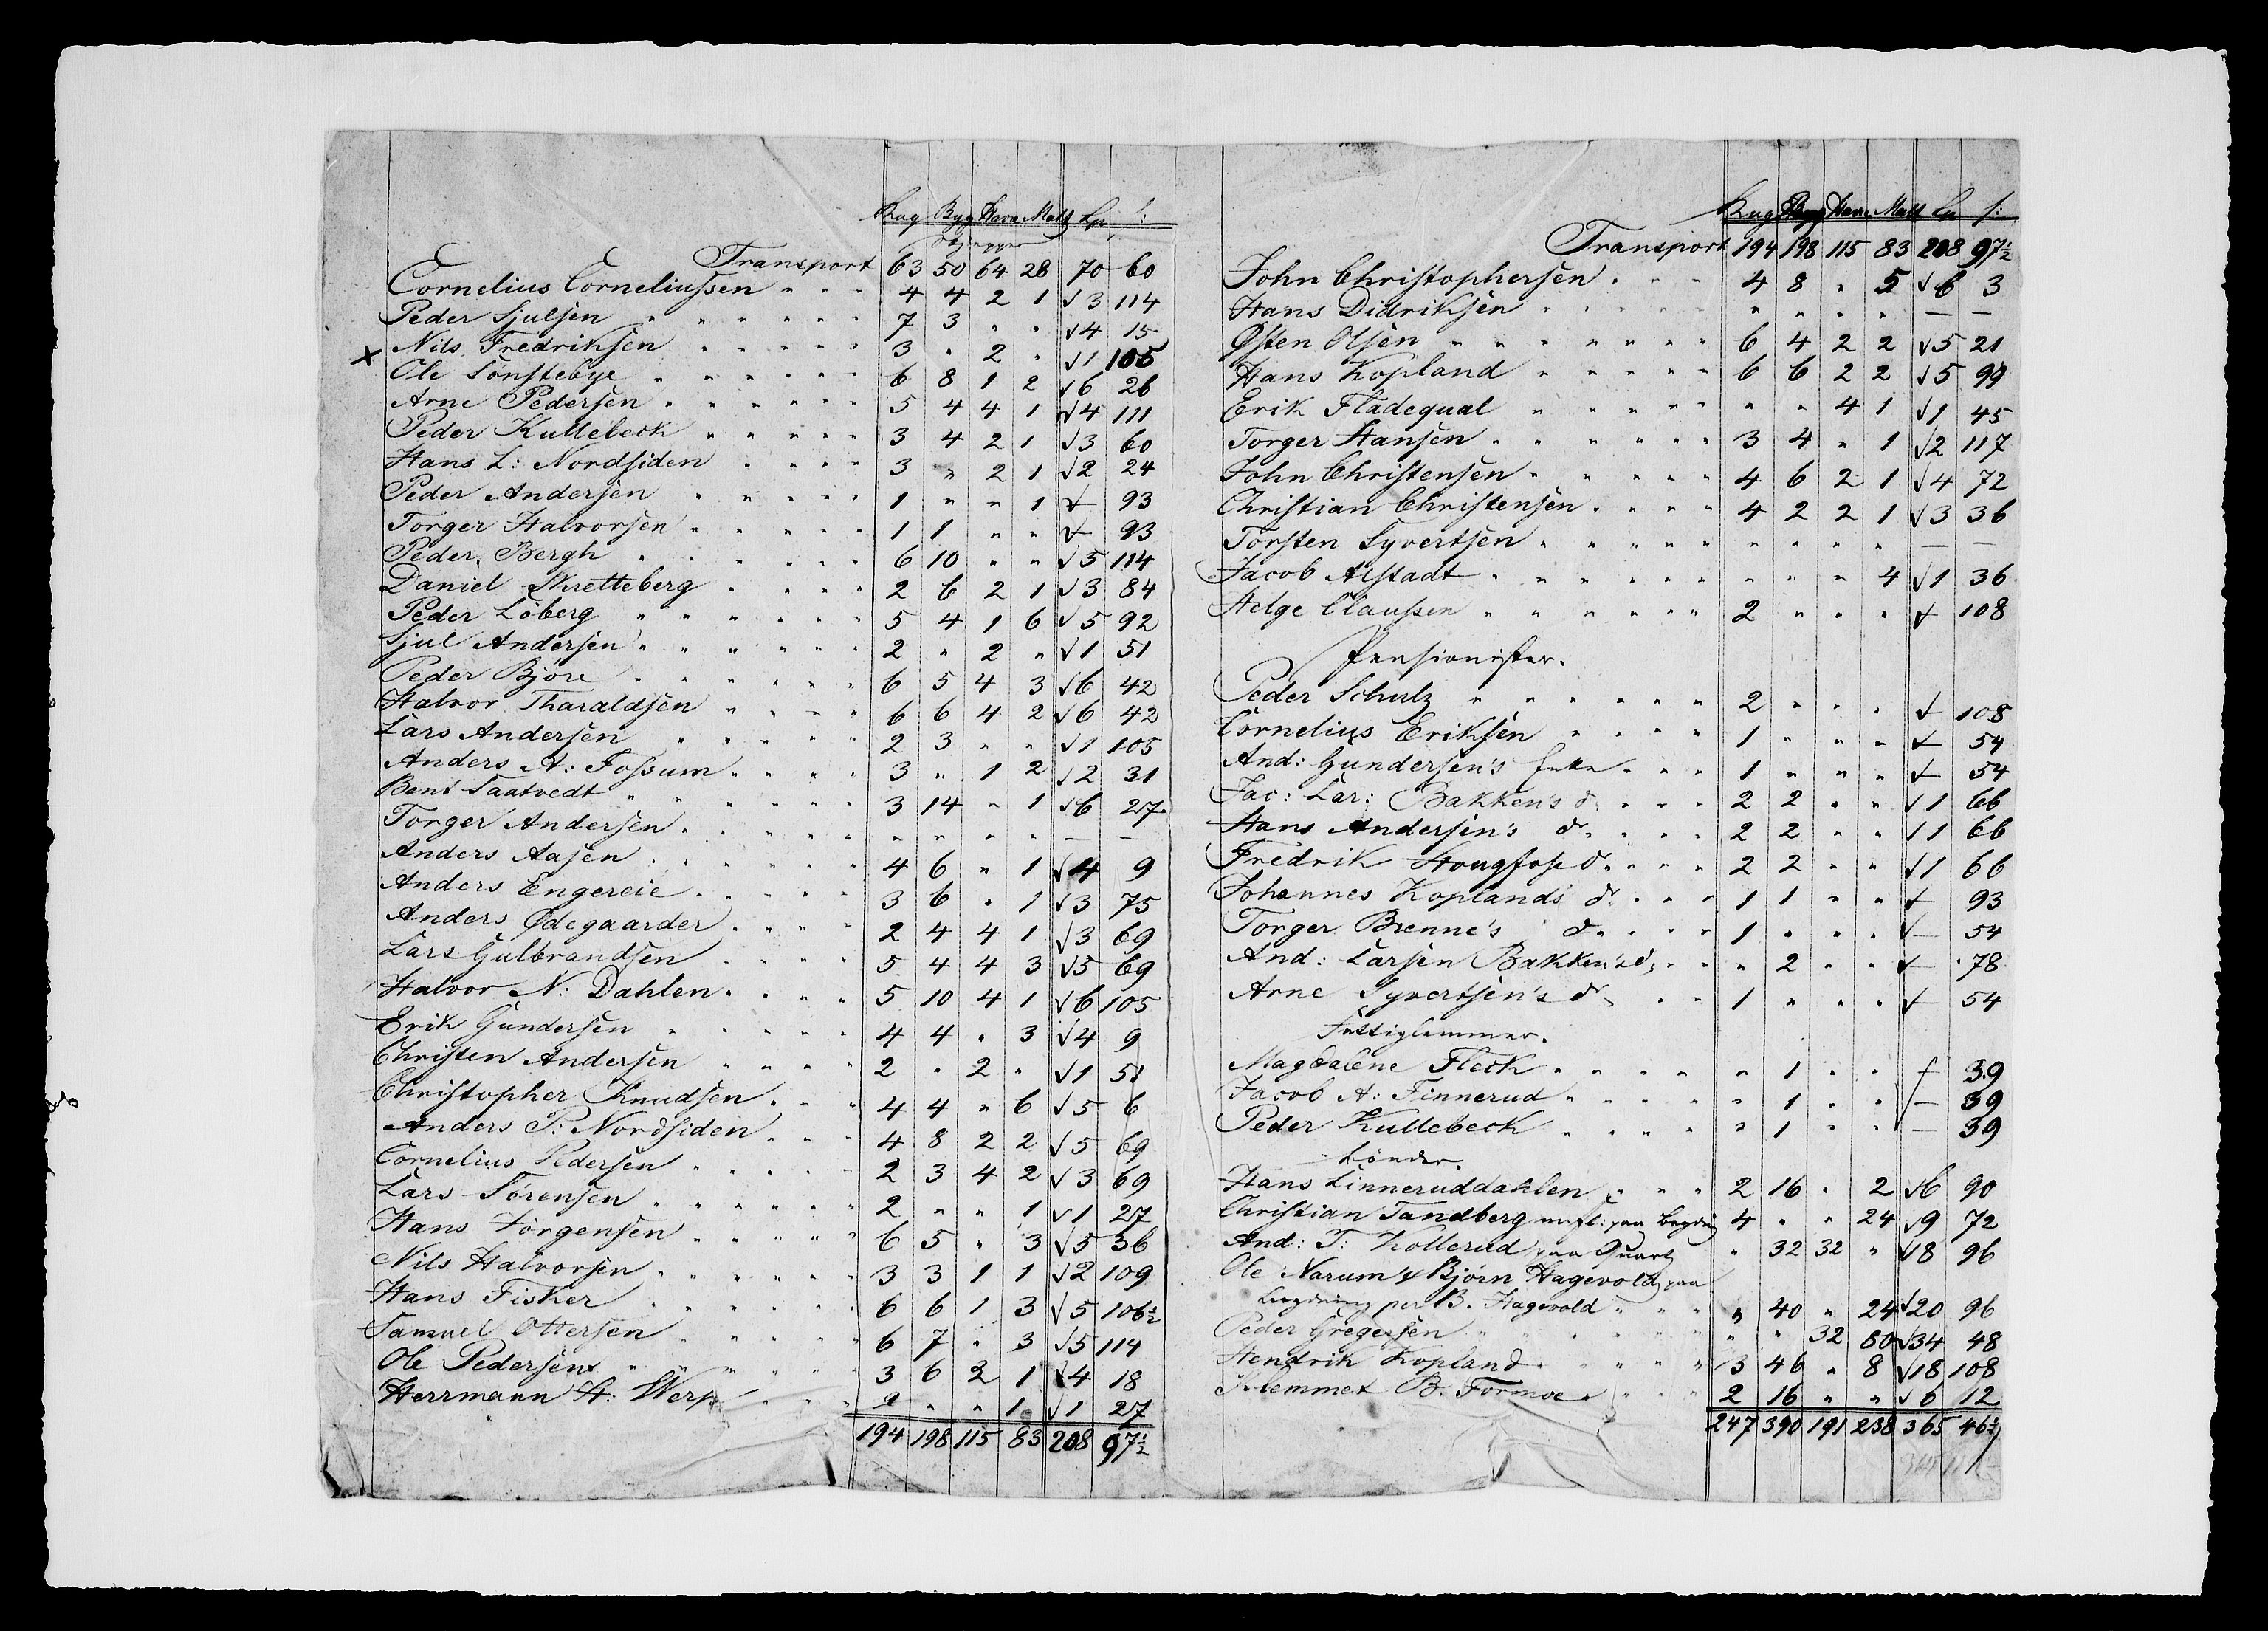 Rug Byg Havre Malt Lp. ſ:
Skjepper
Transport 63 50 64 28 70 60
Cornelius Corneliusſen " " " 4 4 2 1 √3 114
Peder Sjulſen " " " 7 3 " " √4 15
Nils Fredrikſen " " " 3 " 2 " √1 105
x Ole Sönſtebye " " " 6 8 1 2 √6 26
Arne Pederſen " " " 5 4 4 1 √4 111
Peder Kullebeck " " " 3 4 2 1 √3 60
Hans L: Nordſiden " " " 3 " 2 1 √2 24
Peder Anderſen " " " 1 " " 1 √— 93
Torger Halvorſen " " " 1 1 " " √— 93
Peder Bergh " " " 6 10 " " √5 114
Daniel Skretteberg " " " 2 6 2 1 √3 84
Peder Löberg " " " 5 4 1 6 √5 92
Sjul Anderſen " " " 2 " 2 " √1 51
Peder Björe " " " 6 5 4 3 √6 42
Halvor Tharaldſen " " " 6 6 4 2 √6 42
Lars Anderſen " " " 2 3 " " √1 105
Anders A: Foſsum " " " 3 " 1 2 √2 31
Bent Saatvedt " " " 3 14 " 1 √6 27
Torger Anderſen " " " " " " " — —
Anders Aaſen " " " 4 6 " 1 √4 9
Anders Engereie " " " 3 6 " 1 √3 75
Anders Ødegaarder " " " 2 4 4 1 √3 69
Lars Gulbrandſen " " " 5 4 4 3 √5 69
Halvor N: Dahlen " " " 5 10 4 1 √6 105
Erik Gunderſen " " " 4 4 " 3 √4 9
Chriſten Anderſen " " " 2 " 2 " √1 51
Chriſtopher Knudſen " " " 4 4 " 6 √5 6
Anders P: Nordſiden " " " 4 8 2 2 √5 69
Cornelius Pederſen " " " 2 3 4 2 √3 69
Lars Sörenſen " " " 2 " " 1 √1 27
Hans Jörgenſen " " " 6 5 " 3 √5 36
Nils Halvorſen " " " 3 3 1 1 √2 109
Hans Fisker " " " 6 6 1 3 √5 106½
Samuel Otterſen " " " 6 7 " 3 √5 114
Ole Pederſen " " " 3 6 2 1 √4 18
Herrmann H: Werp " " " 2 " " 1 √1 27
194 198 115 83 208 97½
Rug Byg Havre Malt Lp ſ:
Transport 194 198 115 83 208 97½
John Chriſtopherſen " " " 4 8 " 5 √6 3
Hans Didrikſen " " " " " " " — —
Øſten Olſen " " " 6 4 2 2 √5 21
Hans Kopland " " " 6 6 2 2 √5 99
Erik Fladequal " " " " " 4 1 √1 45
Torger Hanſen " " " 3 4 " 1 √2 117
John Chriſtenſen " " " 4 6 2 1 √4 72
Chriſtian Chriſtenſen " " " 4 2 2 1 √3 36
Torſten Syvertſen " " " " " " " — —
Jacob Alſtadt " " " " " " 4 √1 36
Helge Clausſen " " " 2 " " " √— 108
Penſioniſter.
Peder Schulz " " " 2 " " " √— 108
Cornelius Erikſen " " " 1 " " " √— 54
And: Gunderſen's Enke " " " 1 " " " √— 54
Jac: Lar: Bakken's do " " " 2 2 " " √1 66
Hans Anderſen's do " " " 2 2 " " √1 66
Fredrik Hougfoss do " " " 2 2 " " √1 66
Johannes Koplands do " " " 1 1 " " √— 93
Torger Brenne's do " " " 1 " " " √— 54
And: Larſen Bakken's do " " " " 2 " " √— 78
Arne Syvertſen's do " " " 1 " " " √— 54
Fattiglemmer.
Magdalene Fleck " " " " 1 " " √— 39
Jacob A: Finnerud " " " " 1 " " √— 39
Peder Kullebeck " " " " 1 " " — 39
Bönder.
Hans Linneruddahlen " " " 2 16 " 2 √6 90
Chriſtian Tandberg paa Bygning 4 " " 24 √9 72
And: T: Kollerud paa Quartz " 32 32 " √18 96
Ole Narum & Björn Hagevold paa
Bygning per B. Hagevold " " " " 40 " 24 √20 96
Peder Gregerſen " " " " " 32 80 √34 48
Hendrik Kopland " " " 3 46 " 8 √18 108
Klemmet B. Formoe " " " 2 16 " " √6 12
247 390 191 238 365 46½